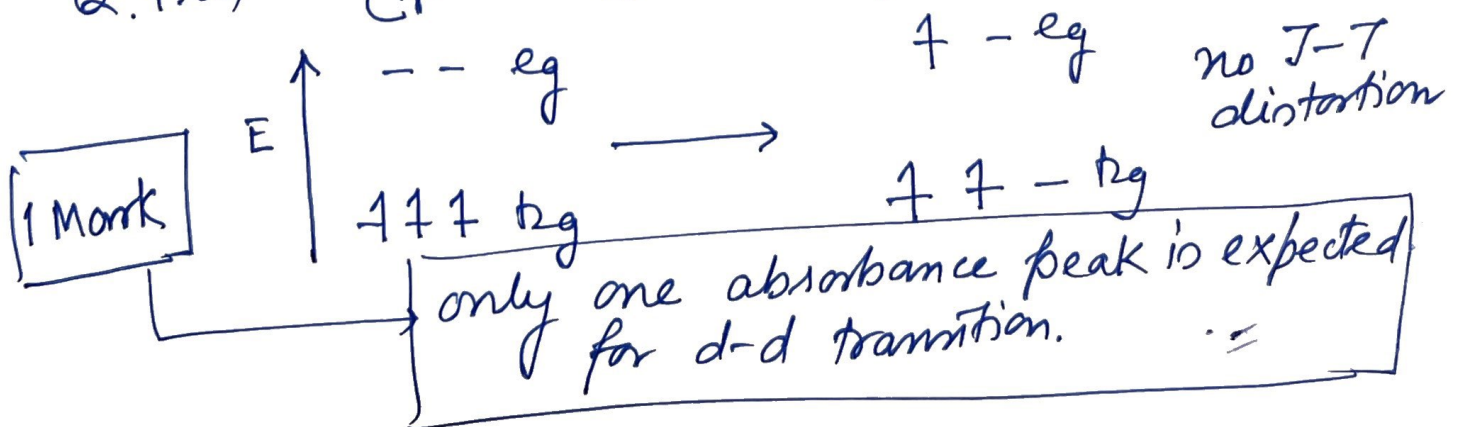 -- eg
E
1 Mark
111 t2g
1 - eg
no J-T
distortion
1 1 - t2g
only one absorbance peak is expected
for d-d transition.